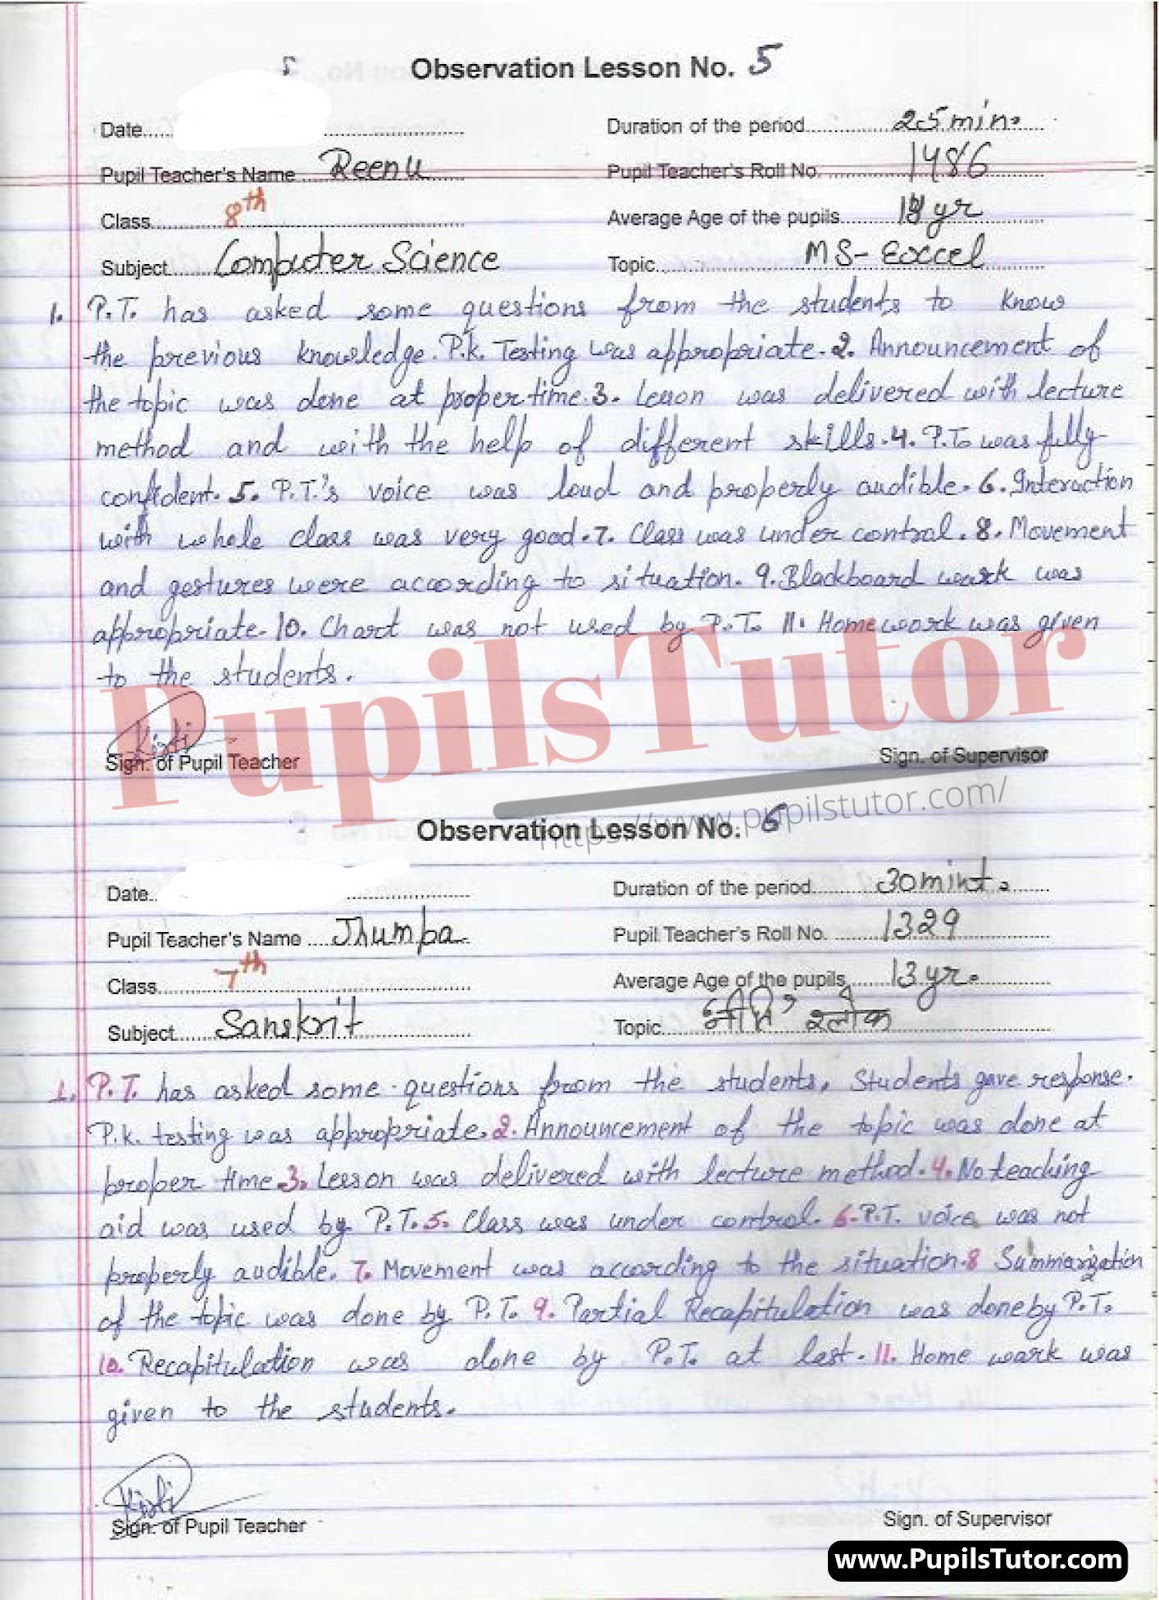 Observation Lesson No. 5
Date
Duration of the period 25 min.
Pupil Teacher's Name Reenu
Pupil Teacher's Roll No. 1486
Class 8th
Average Age of the pupils yr
Subject Computer Science
Topic MS-Excel
1. P.T. has asked some questions from the students to know
the previous knowledge. P.k. Testing was appropriate. 2. Announcement of
the topic was done at proper time. 3. Lesson was delivered with lecture
method and with the help of different skills. 4. P.T. was fully
confident. 5. P.T.'s voice was loud and properly audible. 6. Interaction
with whole class was very good. 7. Class was under control. 8. Movement
and gestures were according to situation. 9. Blackboard work was
appropriate. 10. Chart was not used by P.T. 11. Home work was given
to the students.
PupilsTutor
Sign. of Pupil Teacher
Sign. of Supervisor
https://www.pupilstutor.com/
Observation Lesson No. 6
Date
Duration of the period 30 mint.
Pupil Teacher's Name Jhumpa
Pupil Teacher's Roll No. 1329
Class 7th
Average Age of the pupils 13 yr.
Subject Sanskrit
Topic श्लोक
1. P.T. has asked some questions from the students, Students gave response.
P.k. testing was appropriate. 2. Announcement of the topic was done at
proper time. 3. Lesson was delivered with lecture method. 4. No teaching
aid was used by P.T. 5. Class was under control. 6. P.T. voice was not
properly audible. 7. Movement was according to the situation. 8 Summarization
of the topic was done by P.T. 9. Partial Recapitulation was done by P.T.
10. Recapitulation was done by P.T. at last. 11. Home work was
given to the students.
Sign. of Pupil Teacher
Sign. of Supervisor
www.PupilsTutor.com